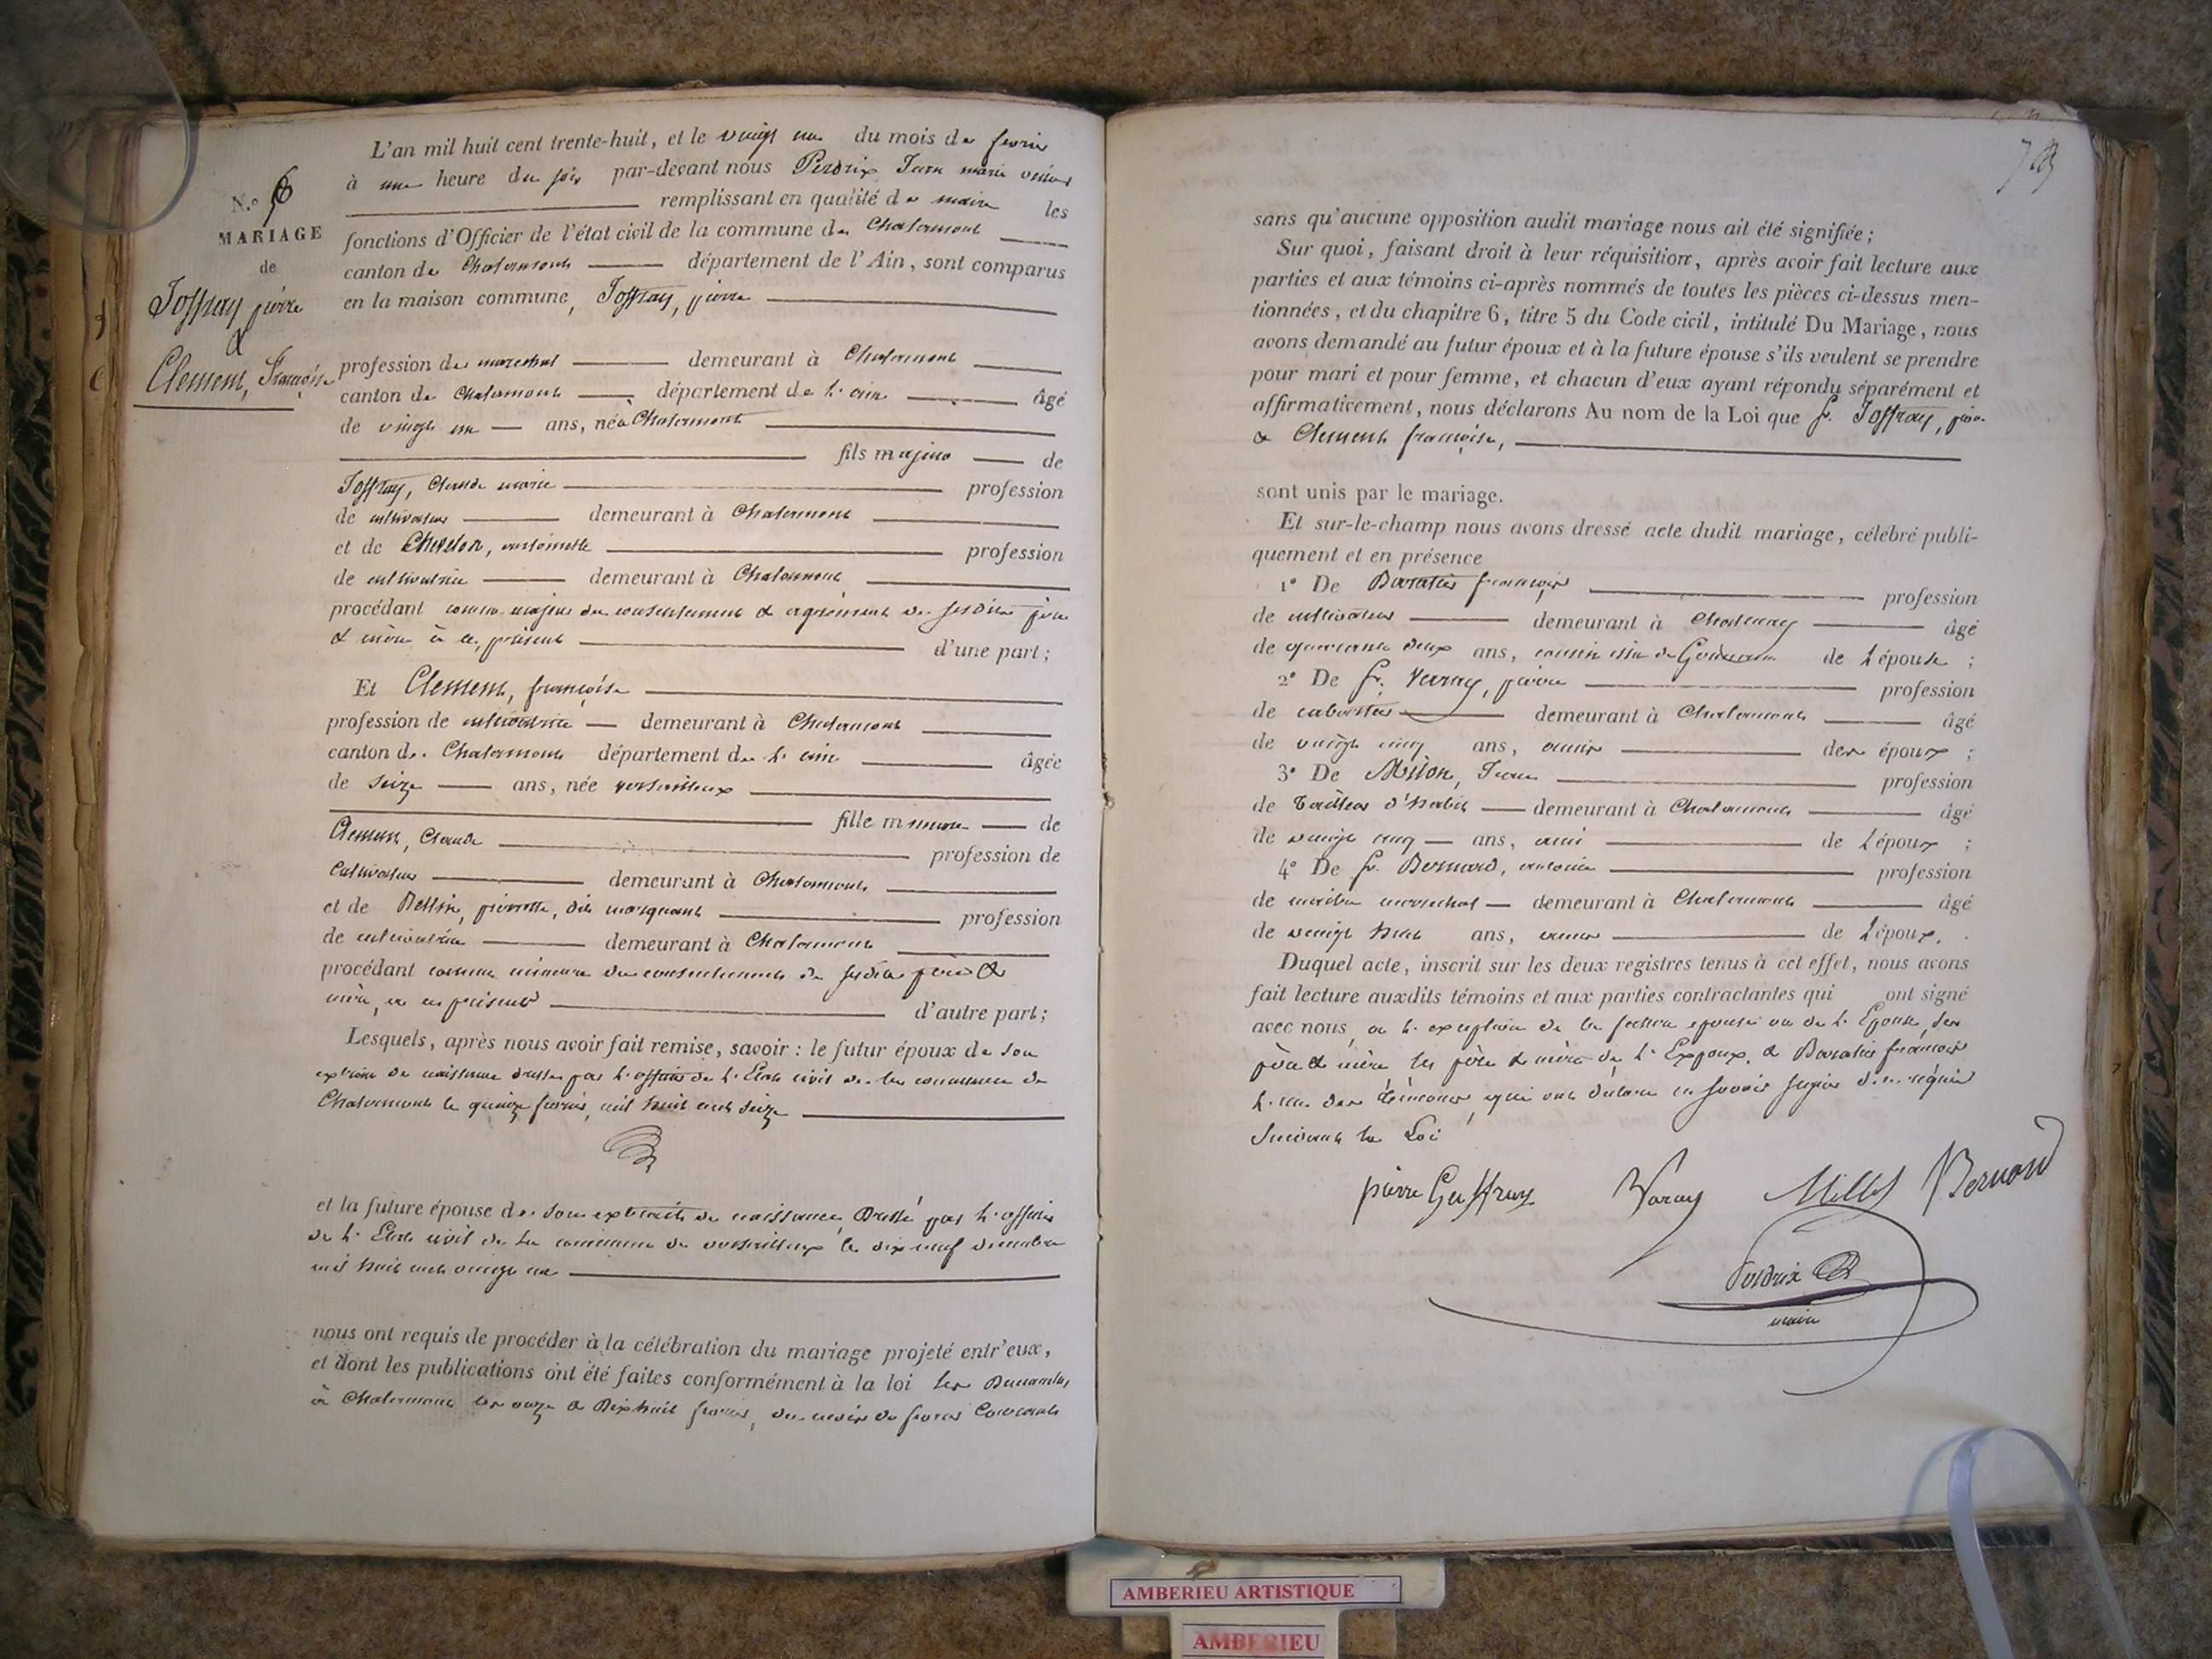 N.º 6
MARIAGE
de
Joffray pierre
&
Clement, Françoise
L'an mil huit cent trente-huit, et le vingt un du mois de fevrier
à une heure du soir par-devant nous Perdrix Jean marie
remplissant en qualité de maire les
fonctions d'Officier de l'état civil de la commune de Chatenay
canton de Chalamont département de l'Ain, sont comparus
en la maison commune, Joffray, pierre
profession de marechal demeurant à Chalamont
canton de Chalamont département de l'ain âgé
de vingt un ans, né à Chalamont
fils majeur de
Joffray, Claude marie profession
de cultivateur demeurant à Chalamont
et de antoinette profession
de cultivatrice demeurant à Chalamont
procédant comme majeur du consentement & agrément de sesdits père
& mère à ce, présents d'une part;
Et Clement, françoise
profession de cultivatrice demeurant à Chalamont
canton de Chalamont département de l'ain âgée
de seize ans, née versailleux
fille mineure de
Clement, Claude profession de
cultivateur demeurant à Chalamont
et de pierrette, dite profession
de cultivatrice demeurant à Chalamont
procédant comme mineure du consentement de sesdits père &
mère, à ce présents d'autre part;
Lesquels, après nous avoir fait remise, savoir: le futur époux de son
extrait de naissance dressé par l'officier de l'Etat civil de la commune de
Chalamont le quinze fevrier, mil huit cent seize
et la future épouse de son extrait de naissance, Dressé par l'officier
de l'Etat civil de la commune de versailleux le dix neuf decembre
mil huit cent vingt un
nous ont requis de procéder à la célébration du mariage projeté entr'eux,
et dont les publications ont été faites conformément à la loi les Dimanches
à Chalamont les onze & Dix huit fevrier, du mois de fevrier Courant
sans qu'aucune opposition audit mariage nous ait été signifiée;
Sur quoi, faisant droit à leur réquisition, après avoir fait lecture aux
parties et aux témoins ci-après nommés de toutes les pièces ci-dessus men-
tionnées, et du chapitre 6, titre 5 du Code civil, intitulé Du Mariage, nous
avons demandé au futur époux et à la future épouse s'ils veulent se prendre
pour mari et pour femme, et chacun d'eux ayant répondu séparément et
affirmativement, nous déclarons Au nom de la Loi que Sr. Joffray, pierre
& Clement françoise,
sont unis par le mariage.
Et sur-le-champ nous avons dressé acte dudit mariage, célébré publi-
quement et en présence
1º De françois profession
de cultivateur demeurant à Chatenay âgé
de quarante deux ans, cousin issu de Germain de l'épouse;
2º De Sr. Varay, pierre profession
de cabaretier demeurant à Chalamont âgé
de vingt cinq ans, amis des époux;
3º De Jean profession
de tailleur d'habits demeurant à Chalamont âgé
de vingt cinq ans, ami de l'époux;
4º De Sr. Bernard, antoine profession
de maitre marechal demeurant à Chalamont âgé
de vingt huit ans, de l'époux.
Duquel acte, inscrit sur les deux registres tenus à cet effet, nous avons
fait lecture auxdits témoins et aux parties contractantes qui ont signé
avec nous, à l'exception de la future epouse ou de l'Epouse, ses
père & mère les père & mère de l'Expoux, & françois
l'un des témoins, qui ont declaré ne savoir signer de ce requis
Suivant la Loi
pierre Geuffray Varay Millet Bernard
Perdrix
maire
AMBERIEU ARTISTIQUE
AMBERIEU